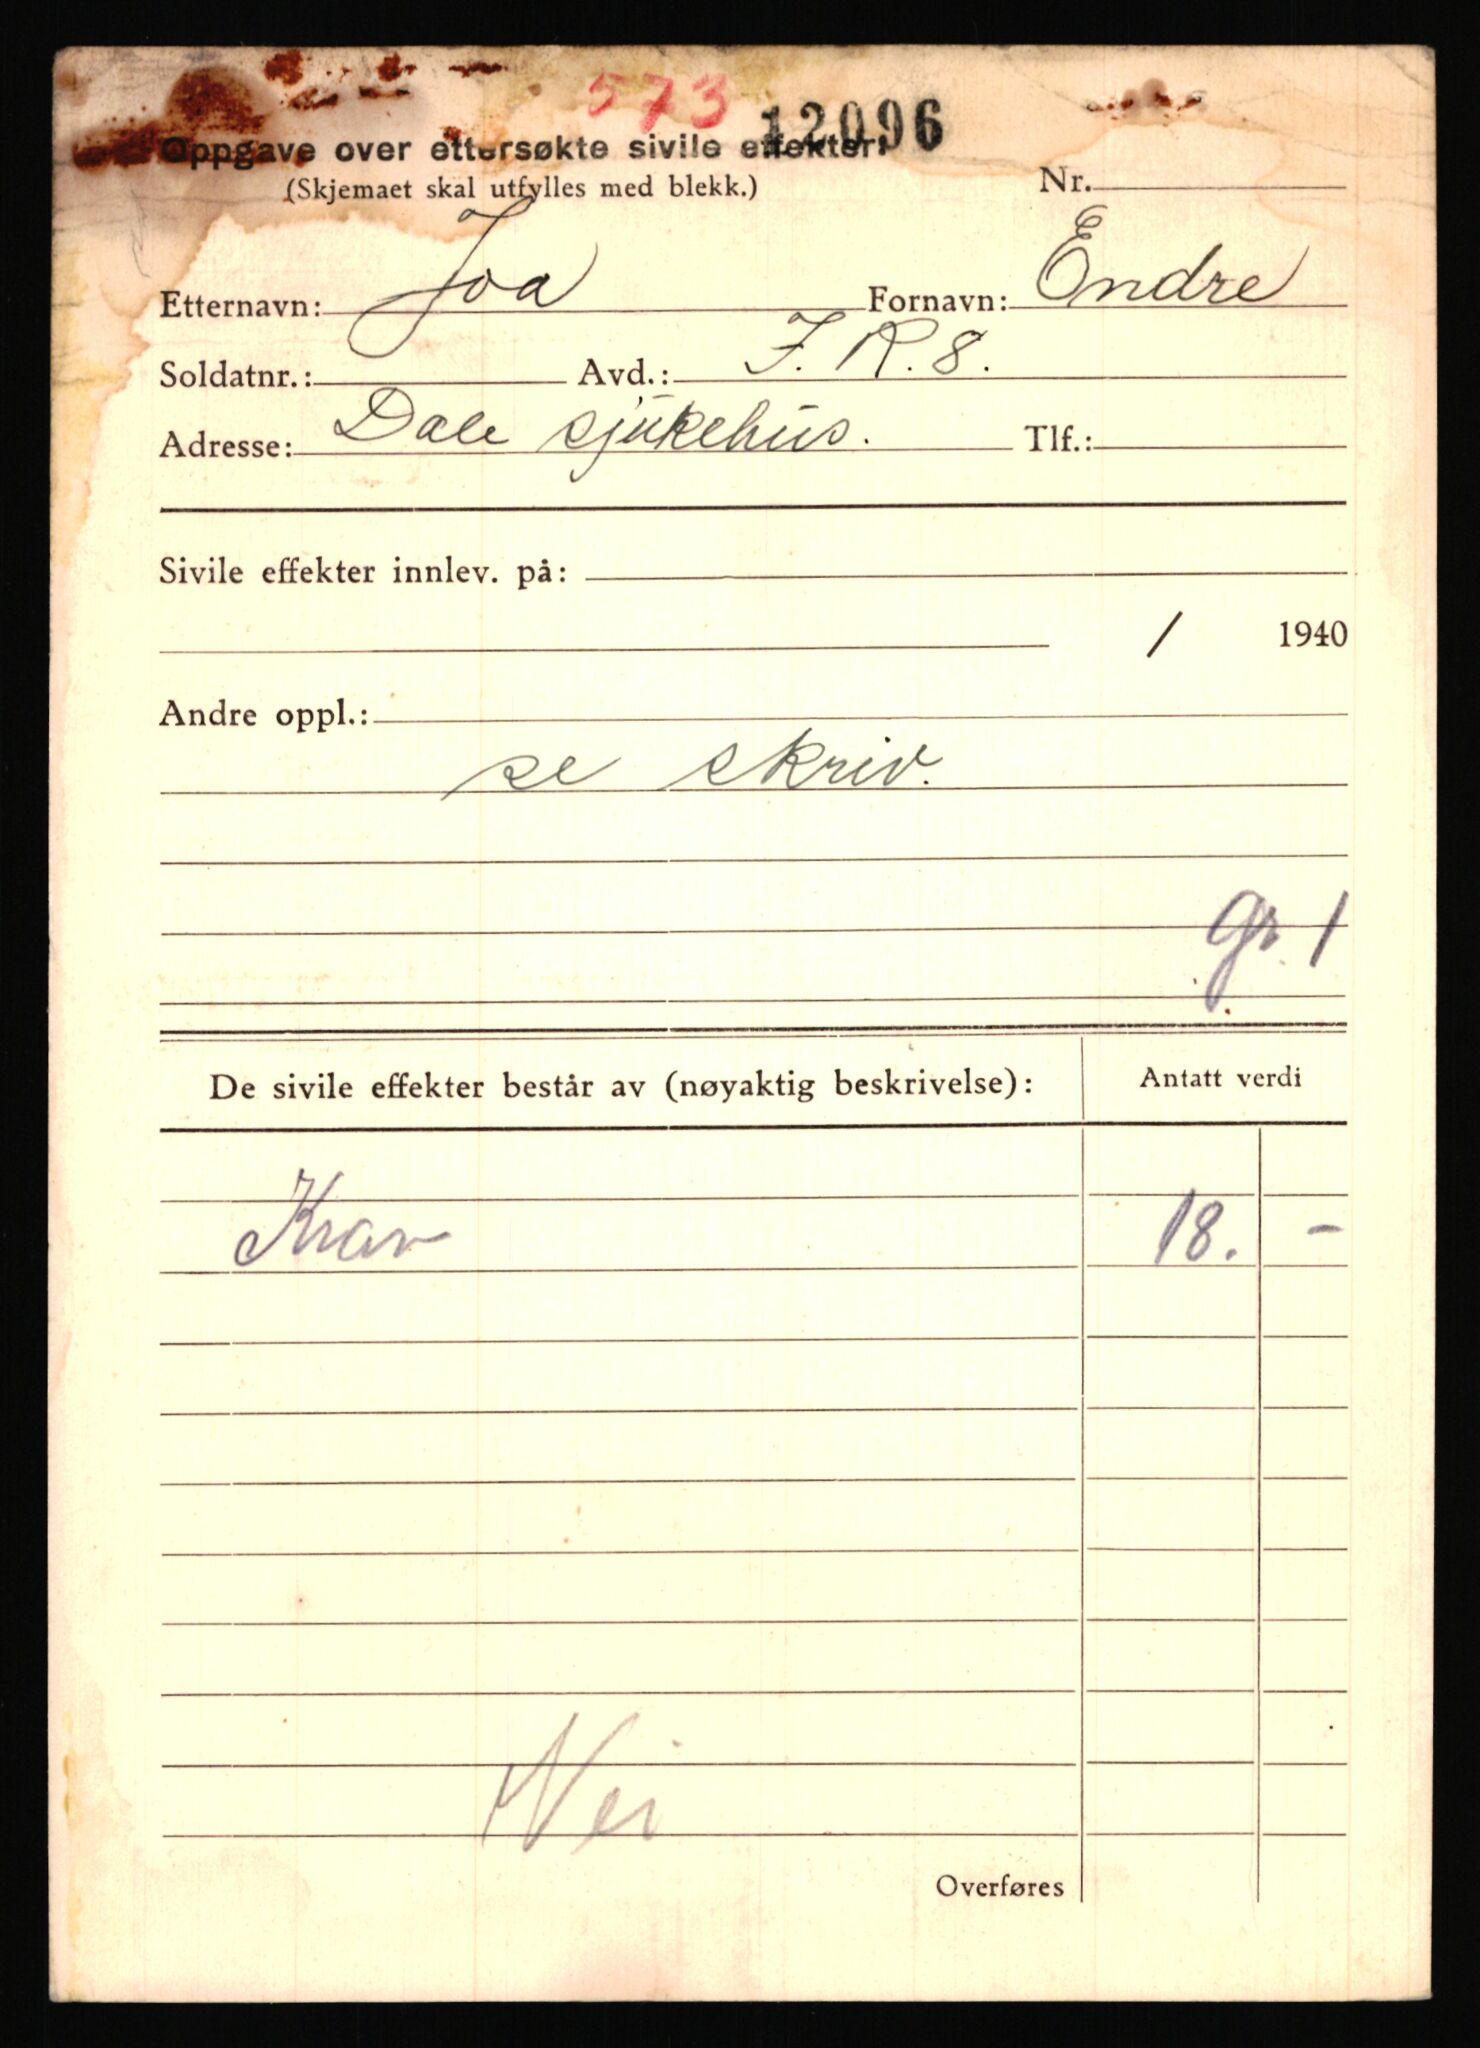 573 12096
Oppgave over ettersøkte sivile effekter:
(Skjemaet skal utfylles med blekk.) Nr.
Etternavn: Joa Fornavn: Endre
Soldatnr.: Avd.: I.R. 8.
Adresse: Dale sjukehus. Tlf.:
Sivile effekter innlev. på:
/ 1940
Andre oppl.:
se skriv.
gr. 1
De sivile effekter består av (nøyaktig beskrivelse): Antatt verdi
Krav 18. -
Nei
Overføres